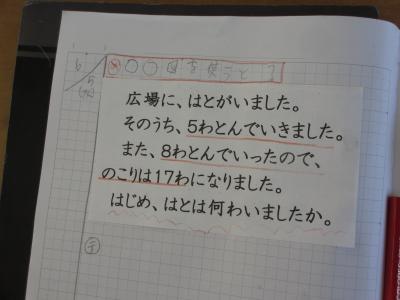 6/5
図を使うと
広場に、はとがいました。
そのうち、5わとんでいきました。
また、8わとんでいったので、
のこりは17わになりました。
はじめ、はとは何わいましたか。